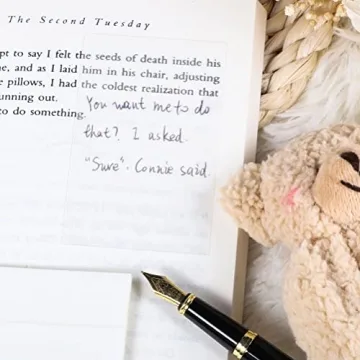 The Second Tuesday
pt to say I felt the seeds of death inside his
e, and as I laid him in his chair, adjusting
e pillows, I had the coldest realization that
unning out.
to do something.
You want me to do
that?, I asked.
"Sure". Connie said.